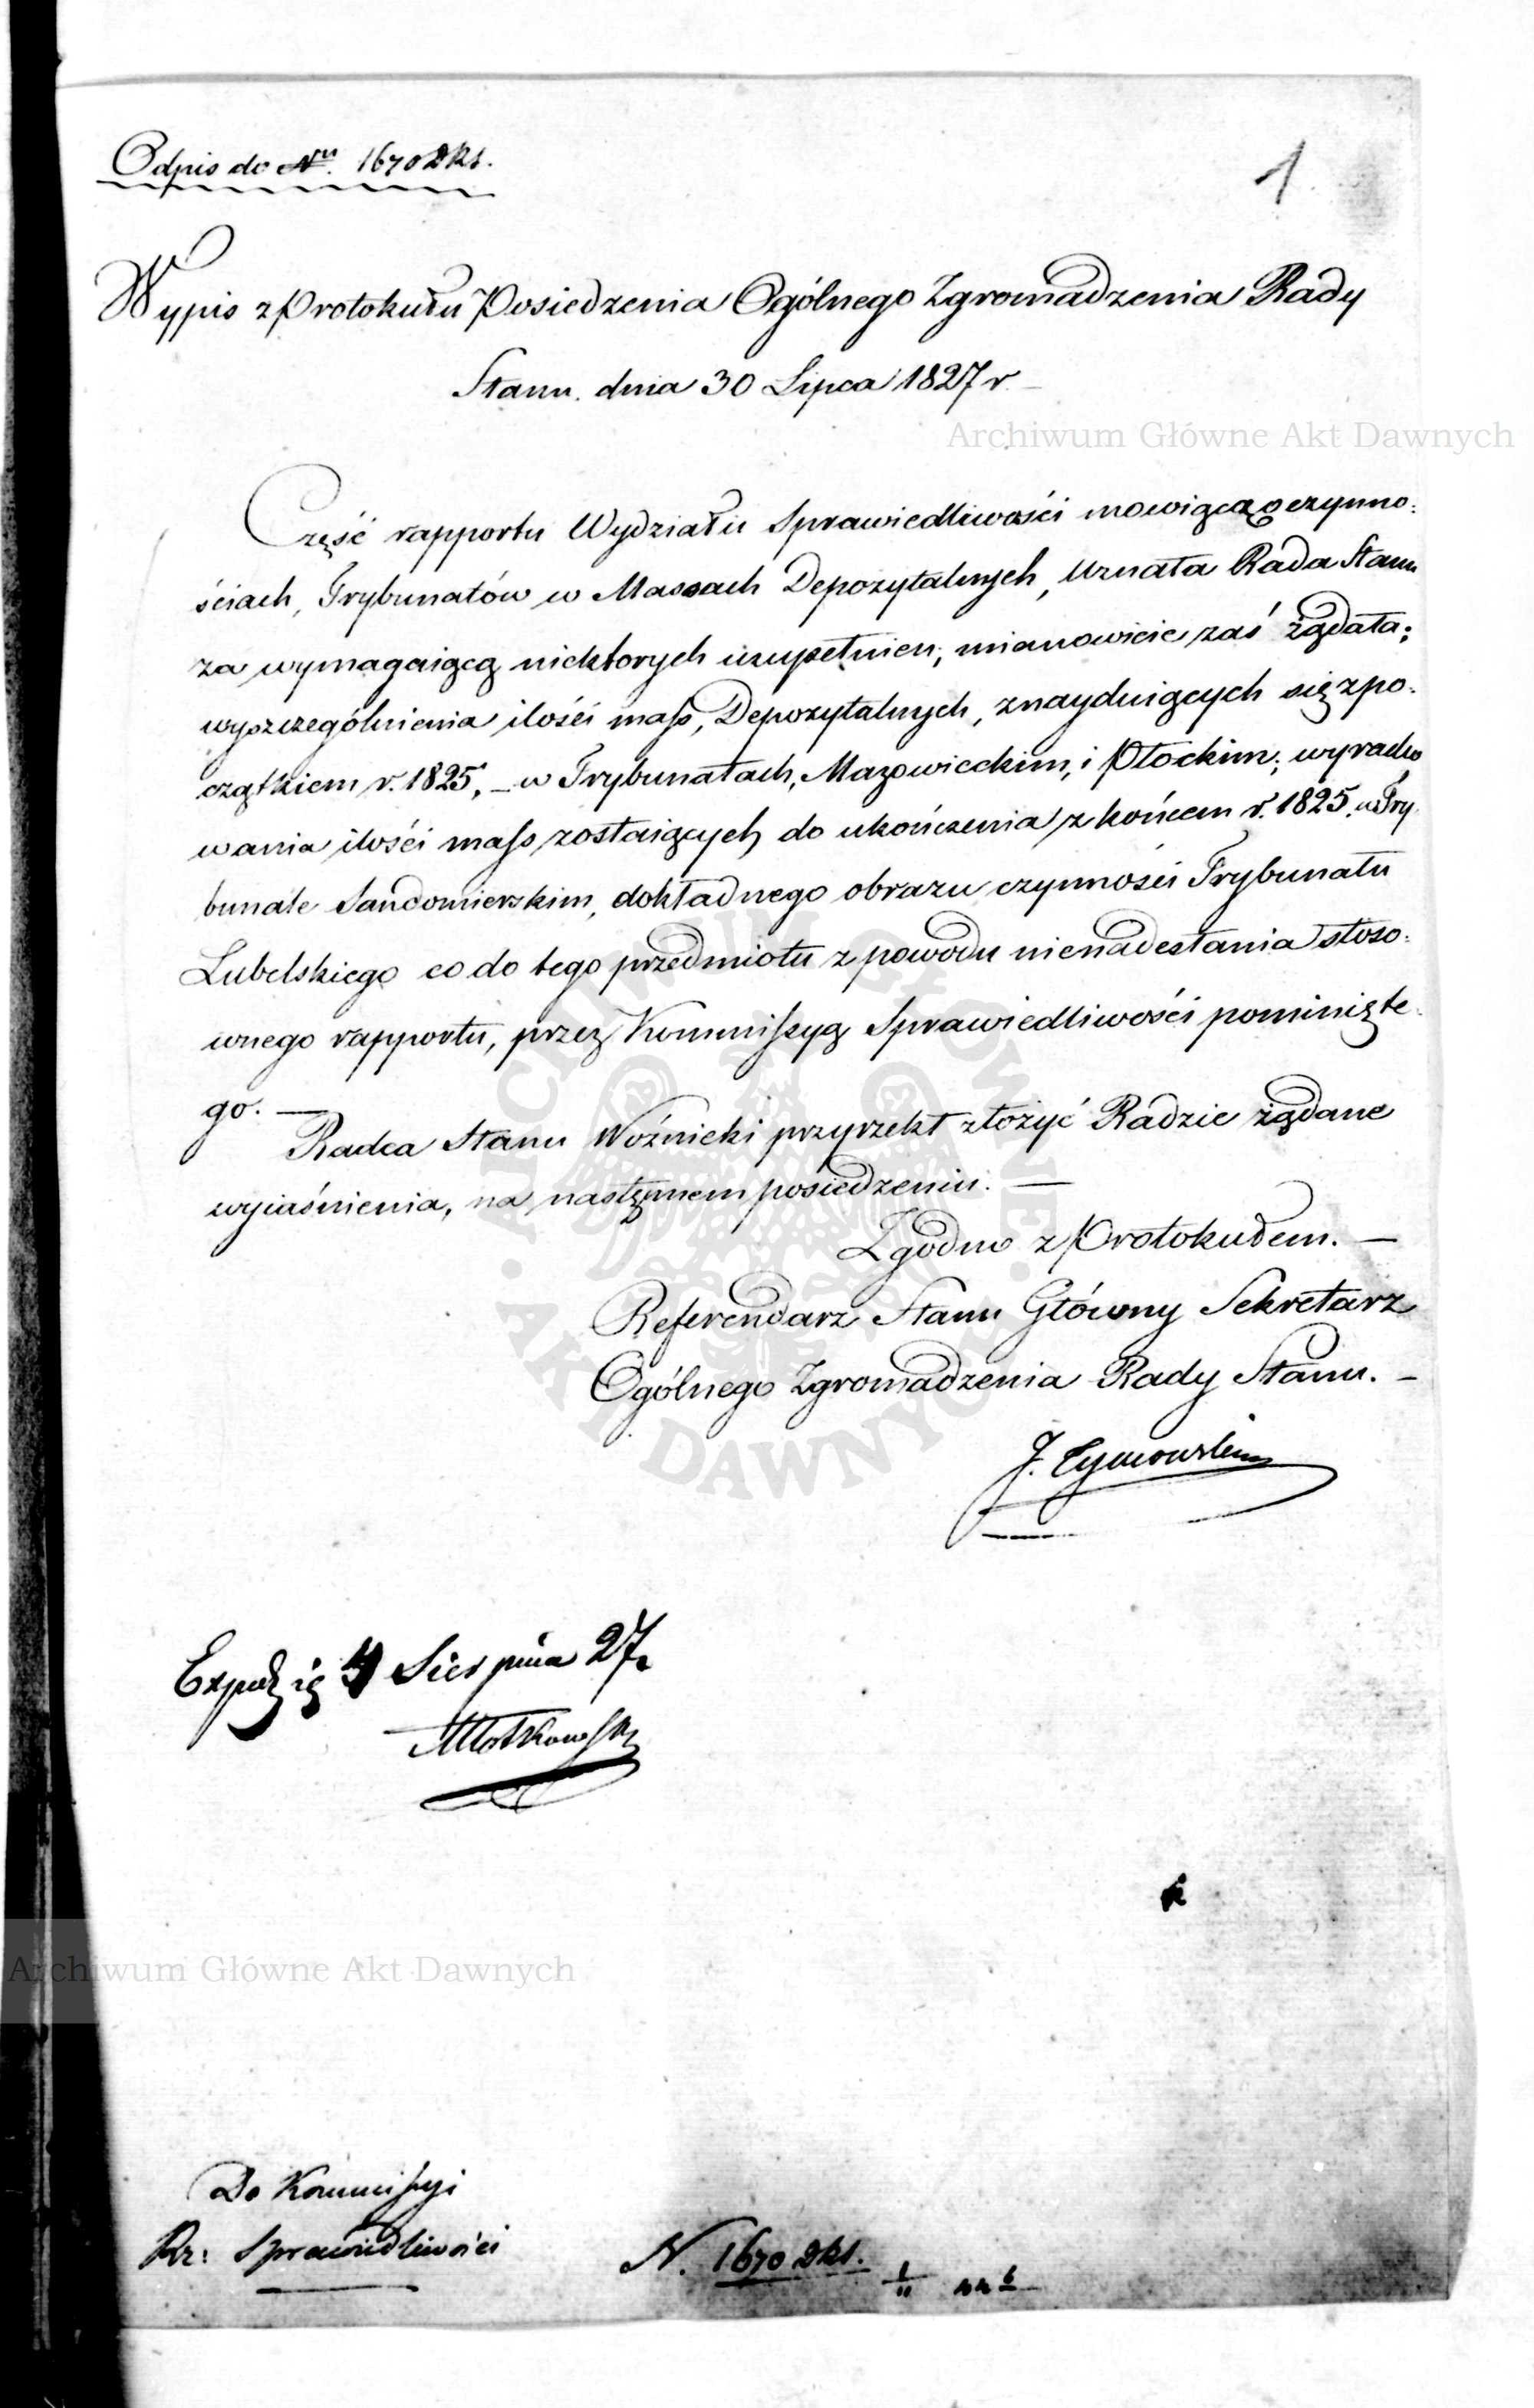 Odpis do Nru. 1670 Dkt.
1
Wypis z Protokułu Posiedzenia Ogólnego Zgromadzenia Rady
Stanu. dnia 30 Lipca 1827 r
Archiwum Główne Akt Dawnych
Część rapportu Wydziału Sprawiedliwości mowiącą o czynno:
ściach, Trybunałów w Massach Depozytalnych, Uznała Rada Stanu
za wymagaiącą niektorych uzupełnien; mianowicie zaś żądała;
wyszczególnienia ilości mass, Depozytalnych, znayduiących się z po:
czątkiem r. 1825, – w Trybunałach, Mazowieckim, i Płockim; wyracho
wania ilości mass zostaiących do ukończenia z końcem r. 1825. w Try
bunale Sandomierskim, dokładnego obrazu czynności Trybunału
Lubelskiego co do tego przedmiotu z powodu nienadesłania stoso:
wnego rapportu, przez Kommissyą Sprawiedliwości pominięte
go. —
Radca Stanu Woźnicki przyrzekł złożyć Radzie żądane
wyiaśnienia, na następnem posiedzeniu. —
Zgodno z Protokułem. —
Referendarz Stanu Główny Sekretarz
Ogólnego Zgromadzenia Rady Stanu. –
J. Tymowski
ARCHIWUM GŁÓWNE AKT DAWNYCH
4 Sierpnia 27.
Archiwum Główne Akt Dawnych
Do Kommissyi
Rz: Sprawiedliwości
N. 1670 Dkt.